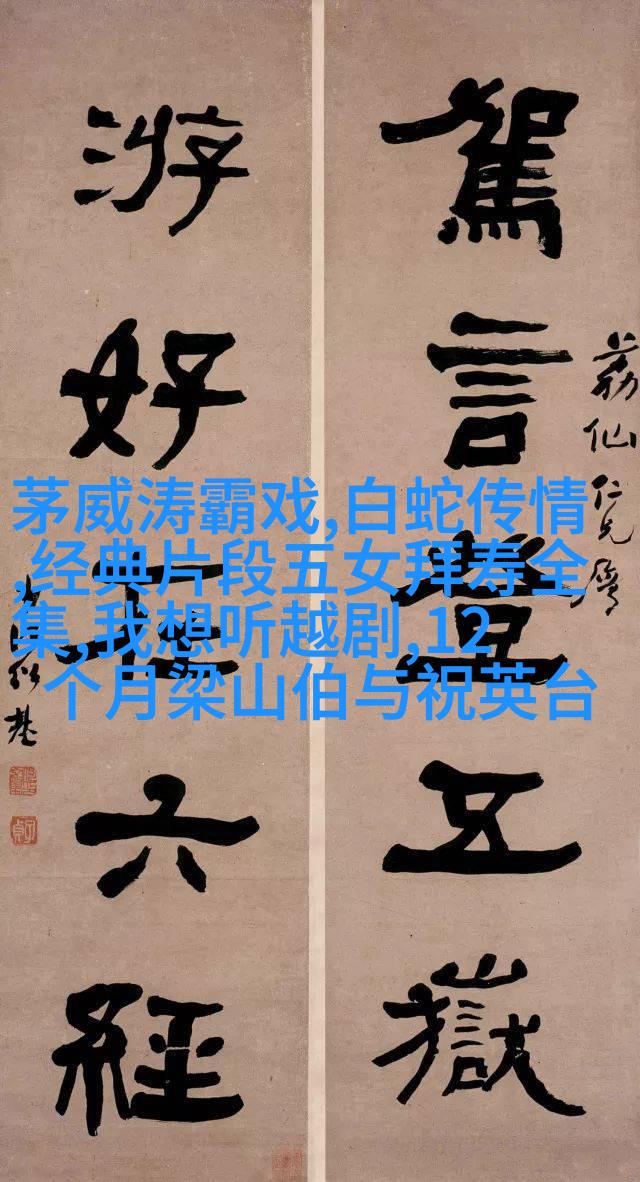 茅威涛霸戏,白蛇传情
,经典片段五女拜寿全
集,我想听越剧,12
个月梁山伯与祝英台
荔仙仁兄屬
駕言登五嶽
游好在六經
紹基